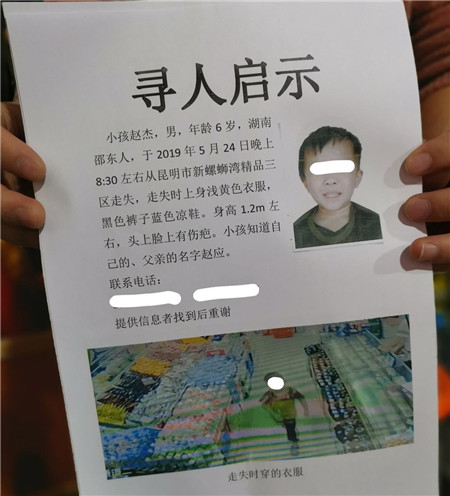 寻人启示
小孩赵杰，男，年龄 6 岁，湖南
邵东人，于 2019 年 5 月 24 日晚上
8:30 左右从昆明市新螺蛳湾精品三
区走失，走失时上身浅黄色衣服，
黑色裤子蓝色凉鞋。身高 1.2m 左
右，头上脸上有伤疤。小孩知道自
己的、父亲的名字赵应。
联系电话：
提供信息者找到后重谢
走失时穿的衣服